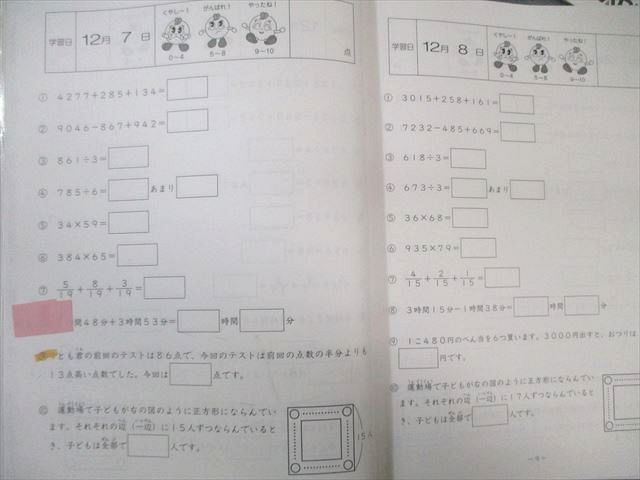 学習日
12月 7日
くやしー！
がんばれ！
やったね！
0〜4
5〜8
9〜10
点
① 4277＋285＋134＝
② 9046−867＋942＝
③ 861÷3＝
④ 785÷6＝ あまり
⑤ 34×59＝
⑥ 384×65＝
⑦ 5/19＋8/19＋3/19＝
間48分＋3時間53分＝ 時間 分
とも君の前回のテストは86点で、今回のテストは前回の点数の半分よりも
13点高い点数でした。今回は 点です。
⑩ 運動場で子どもが右の図のように正方形にならんでい
ます。それぞれの辺（一辺）に15人ずつならんでいると
き、子どもは全部で 人です。
15人
学習日
12月 8日
くやしー！
がんばれ！
やったね！
0〜4
5〜8
9〜10
① 3015＋258＋161＝
② 7232−485＋669＝
③ 618÷3＝
④ 673÷3＝ あまり
⑤ 36×68＝
⑥ 935×79＝
⑦ 4/15＋2/15＋1/15＝
⑧ 3時間15分−1時間38分＝ 時間 分
⑨ 1こ480円のべん当を6つ買います。3000円出すと、おつりは
円です。
⑩ 運動場で子どもが右の図のように正方形にならんでい
ます。それぞれの辺（一辺）に17人ずつならんでいると
き、子どもは全部で 人です。